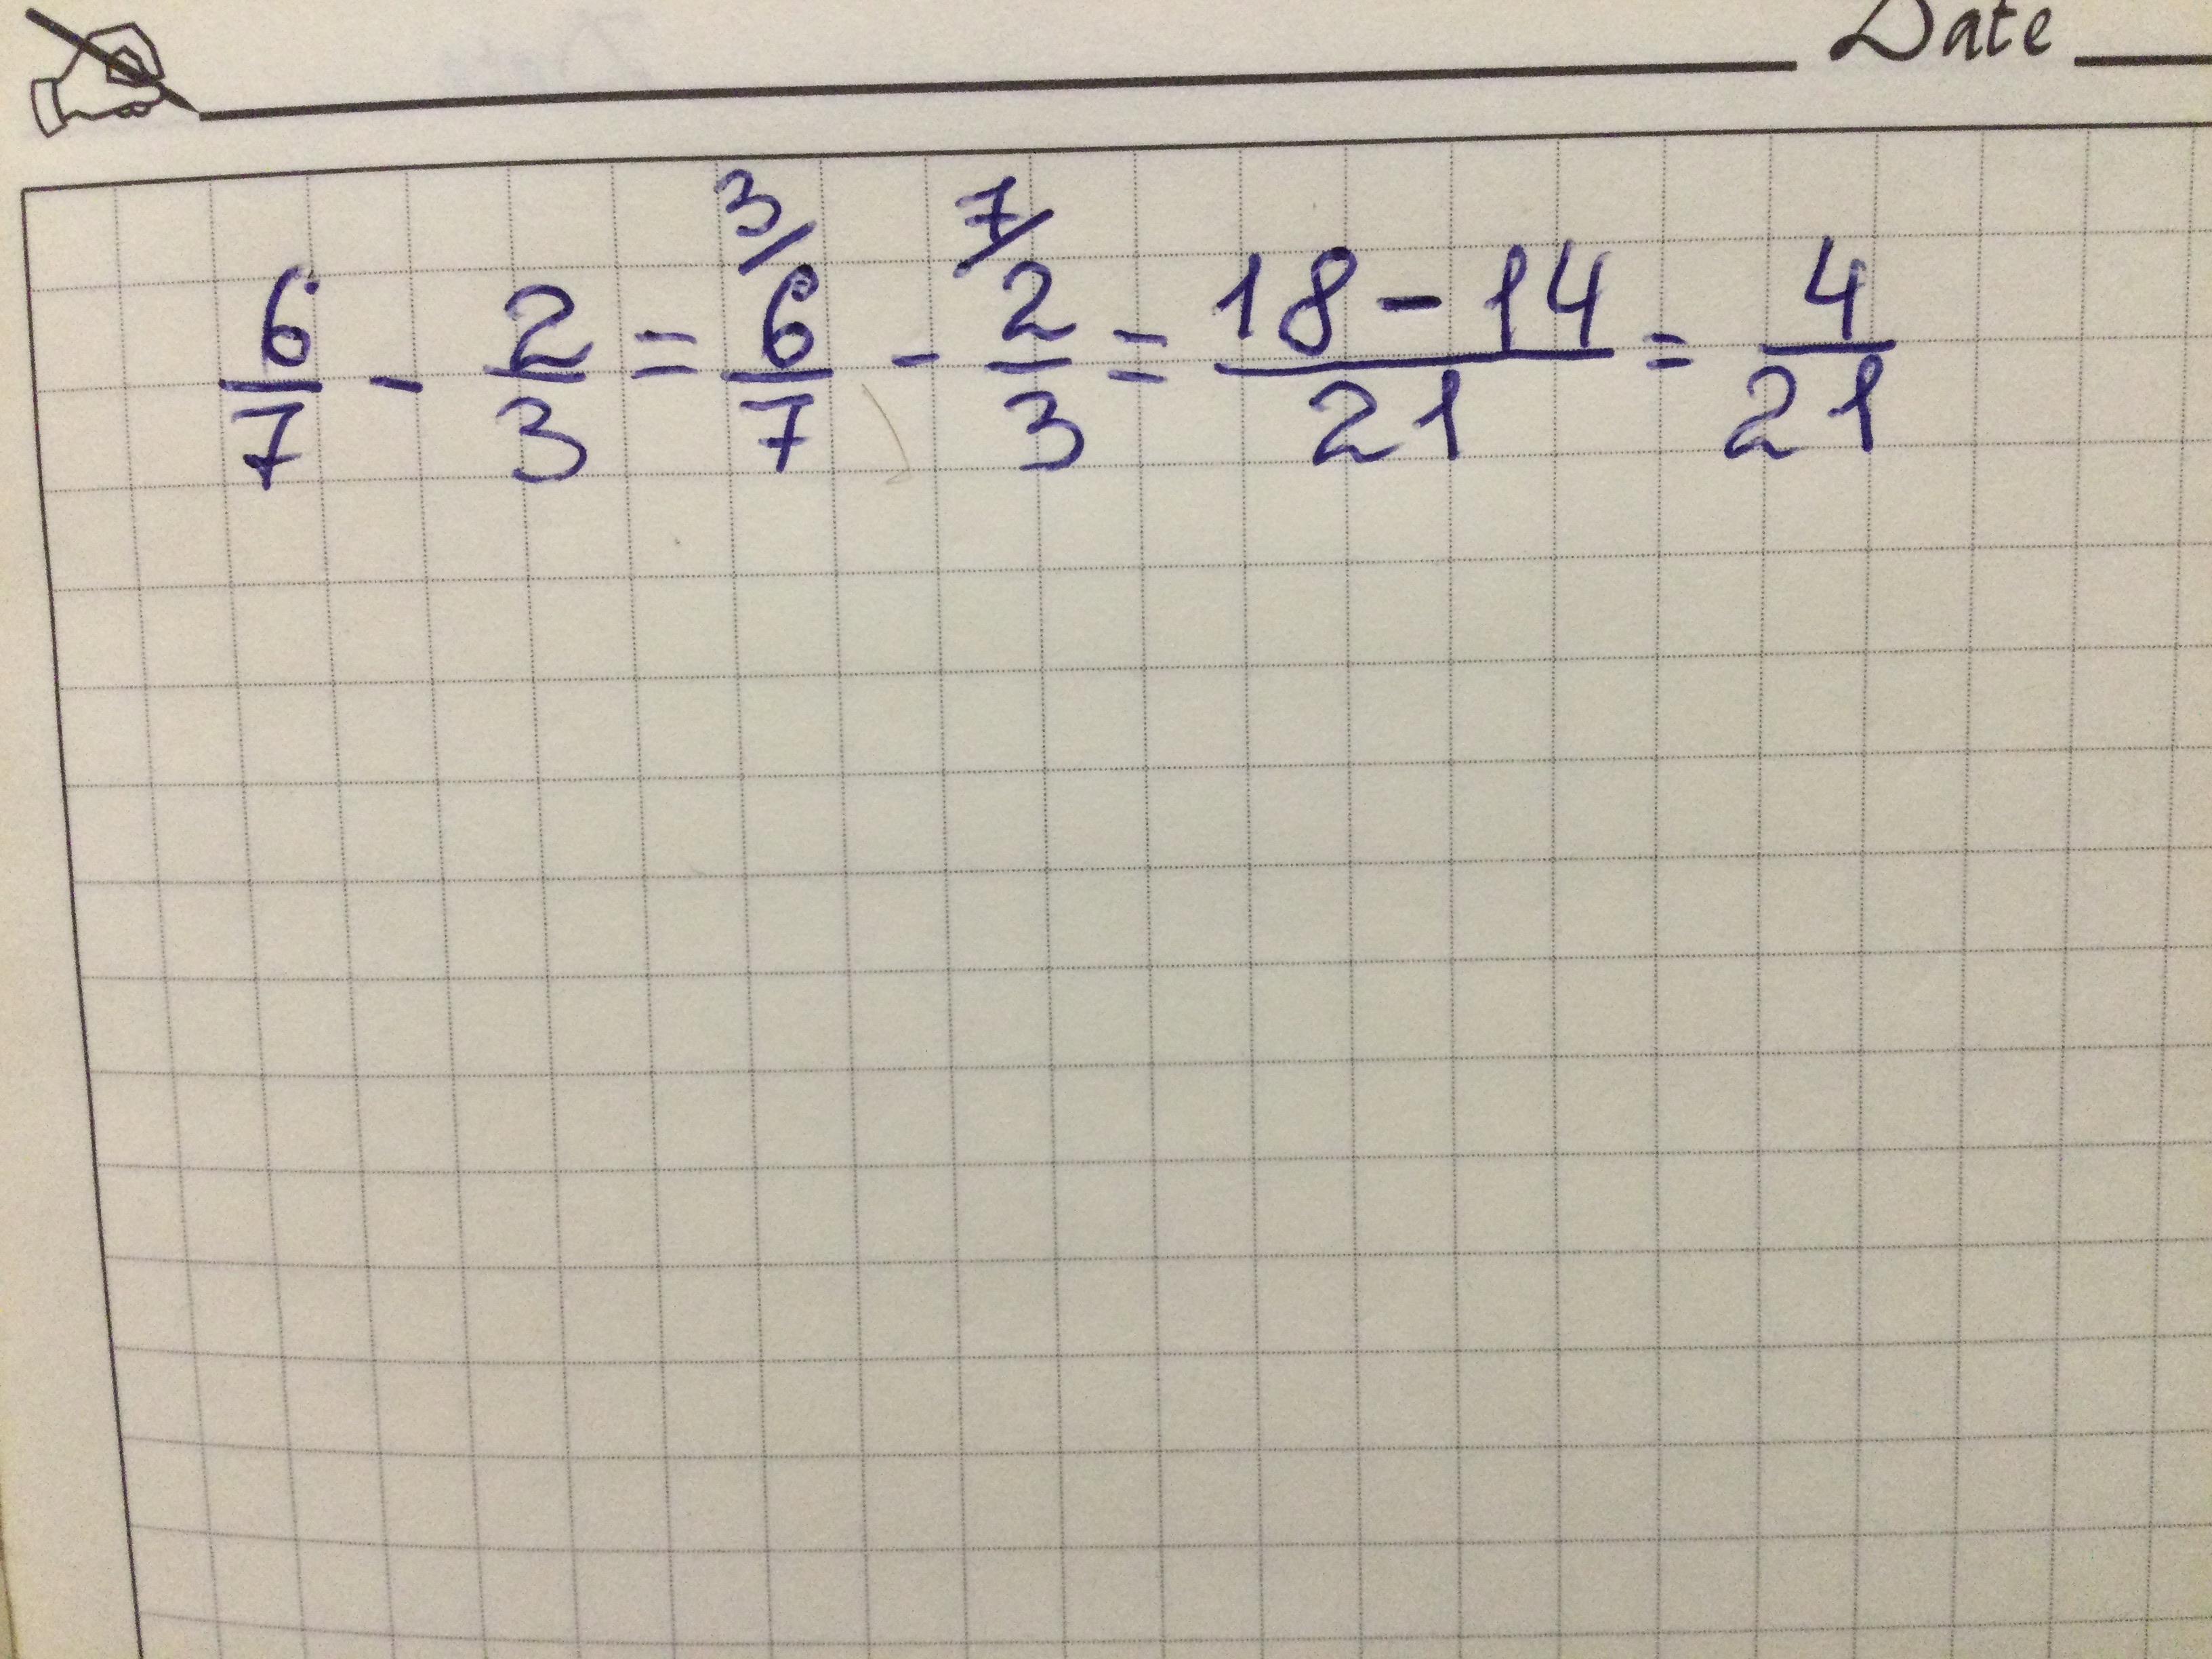 Date
6/7 - 2/3 = 3/ 6/7 - 7/ 2/3 = 18-14/21 = 4/21